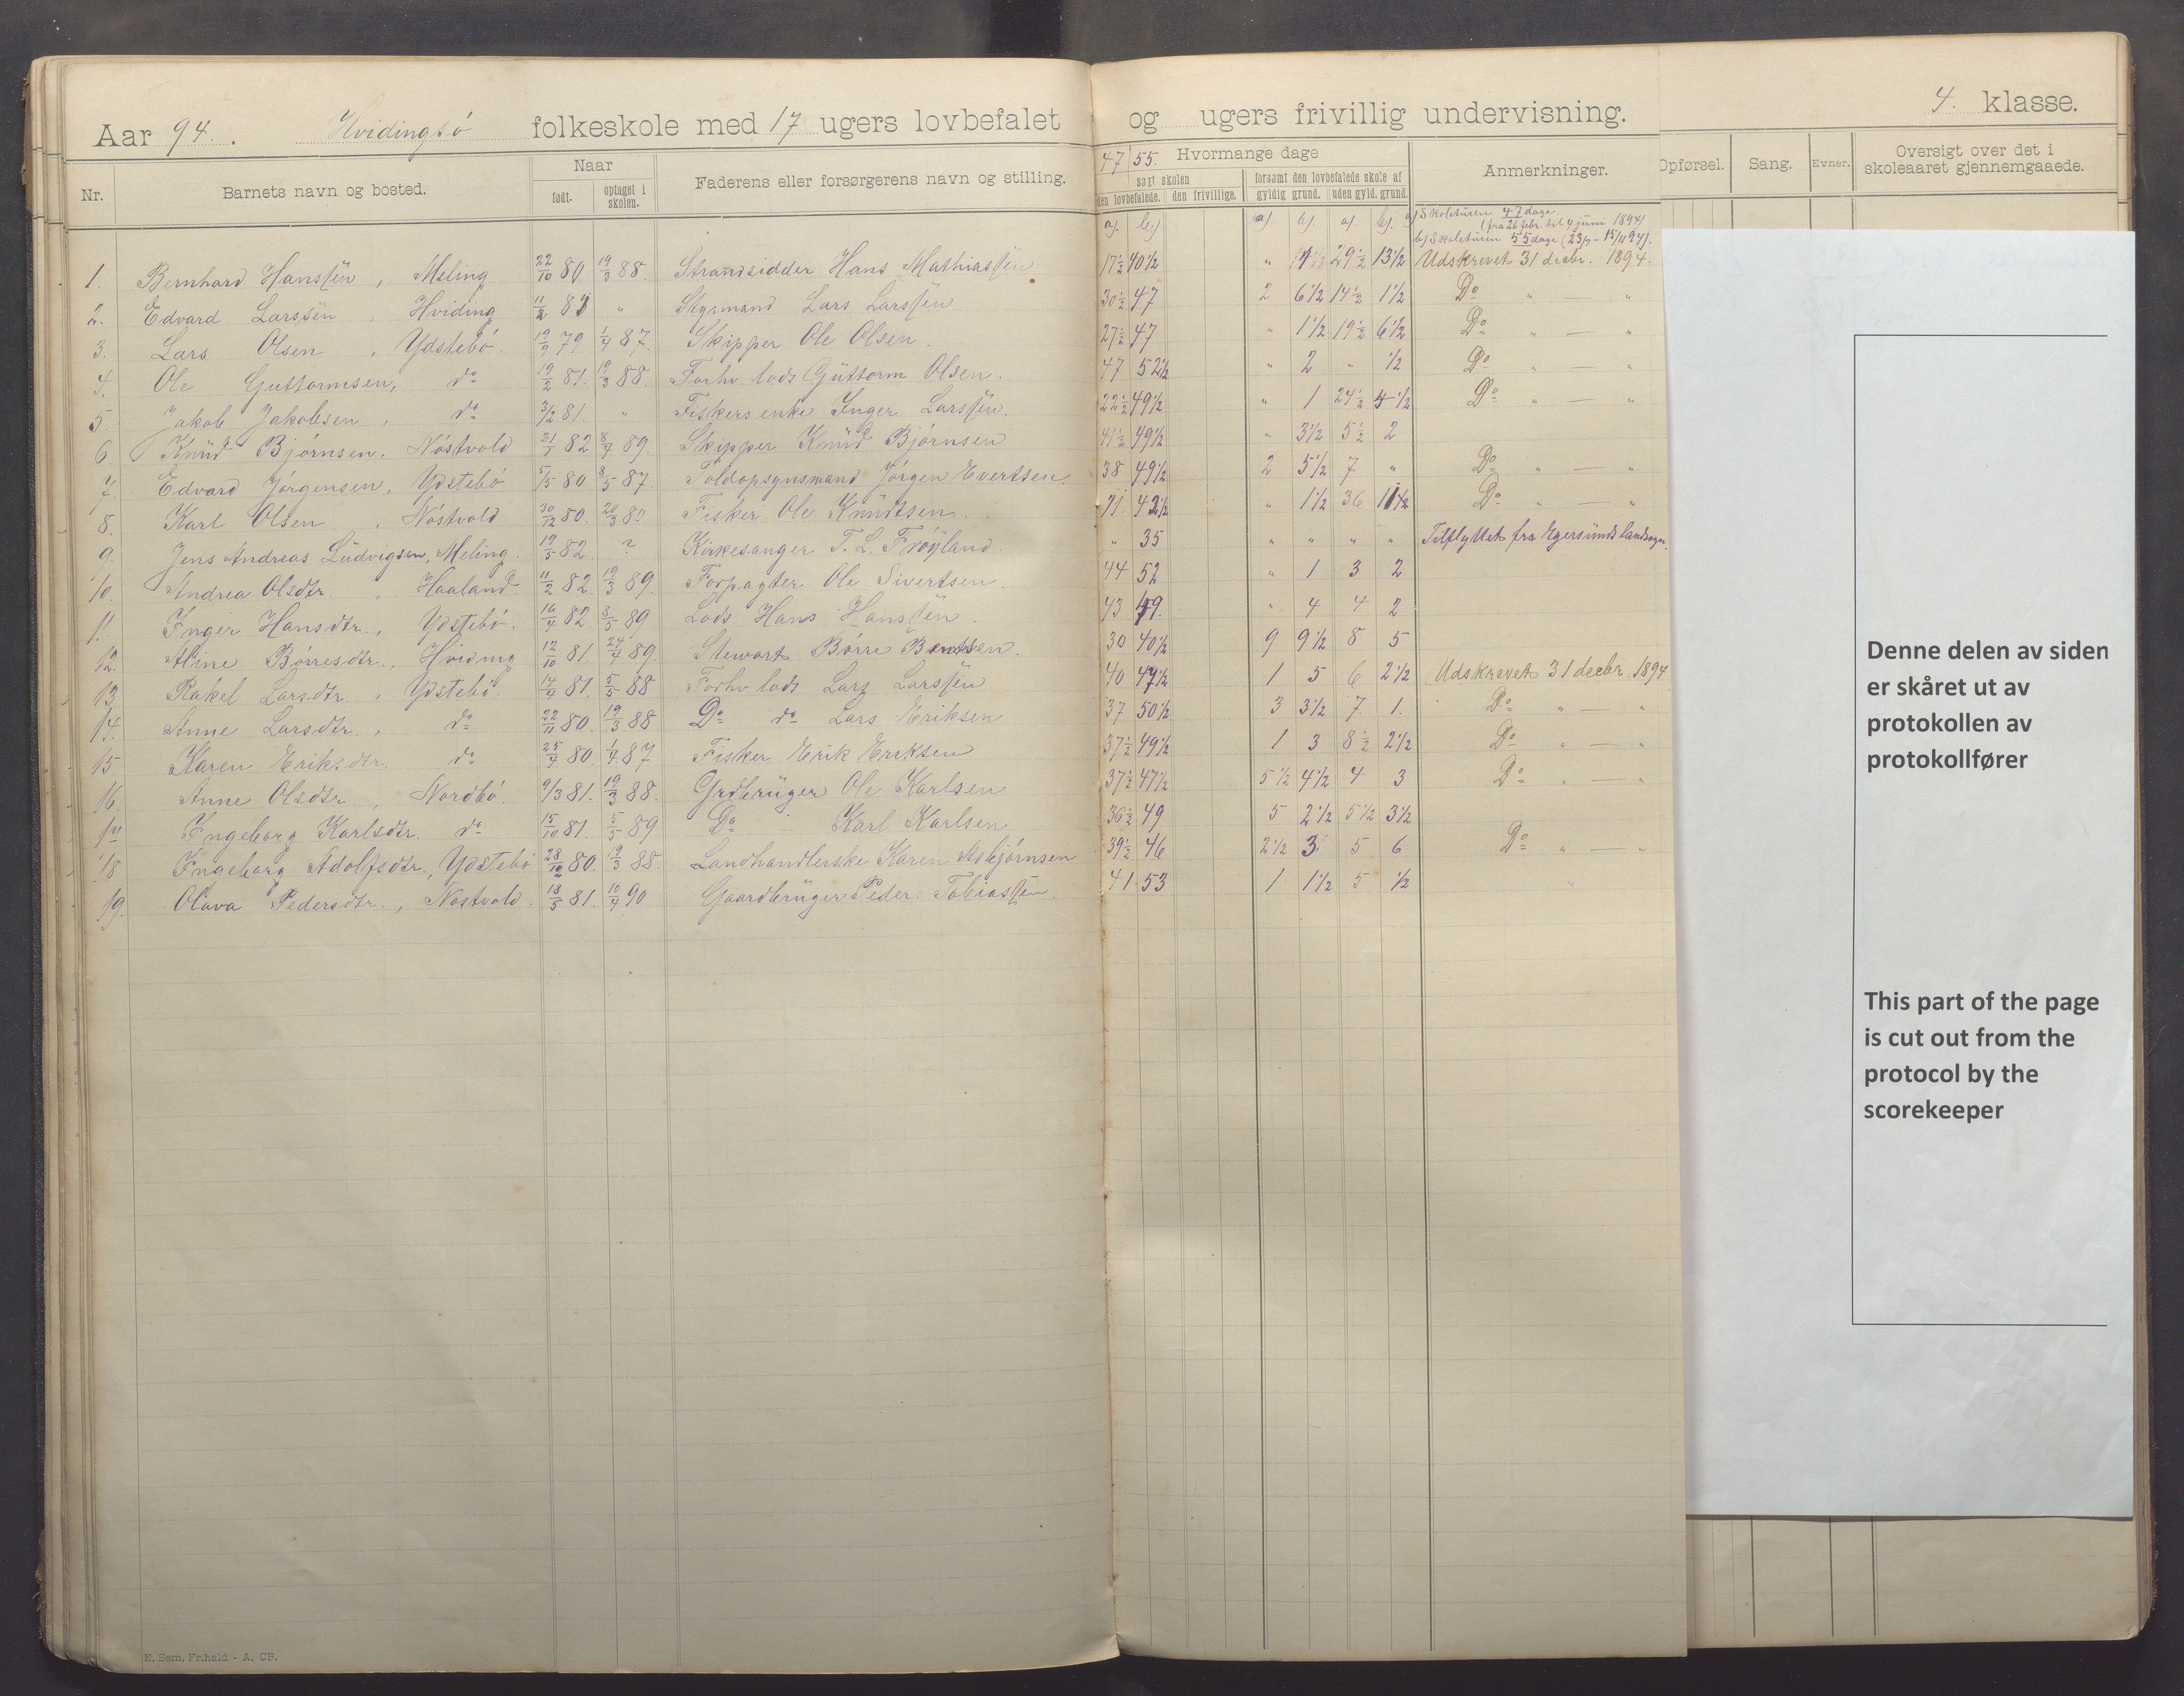 Aar 94. Hvidingsö folkeskole med 17 ugers lovbefalet og ugers frivillig undervisning. 4. klasse.
Nr. Barnets navn og bosted. Naar født. optaget i skolen. Faderens eller forsørgerens navn og stilling. 47 55. Hvormange dage søgt skolen den lovbefalede. den frivillige. forsømt den lovbefalede skole af gyldig grund. uden gyld. grund. Anmerkninger. Opførsel. Sang. Evner. Oversigt over det i skoleaaret gjennemgaaede.
a). b) a) b). a). b). a) Skoleturen 47 dage. (fra 26 febr. til 4 juni 1894)
b) Skoleturen 55 dage (23/7 - 15/11 94).
1. Bernhard Hanssen, Meling 22/10 80 19/3 88. Strandsidder Hans Mathiassen 17 1/2 40 1/2 " 29 1/2 13 1/2 Udskrevet 31 decbr. 1894.
2. Edvard Larssen, Hviding " Styrmand Lars Larssen 30 1/2 47 2 6 1/2 14 1/2 1 1/2 Do " "
3. Lars Olsen, Ydstebö. 19/9 79 1/4 87. Skipper Ole Olsen. 27 1/2 47 " 1 1/2 19 1/2 6 1/2 Do " — "
4. Ole Guttormsen, do 19/2 81. 19/3 88. Forhv. lods Guttorm Olsen. 47 52 1/2 " 2 " 1/2 Do " — "
5. Jakob Jakobsen, do 3/2 81. " Fiskers enke Inger Larssen. 22 1/2 49 1/2 " 1 24 1/2 4 1/2 Do " — "
6. Knud Björnsen. Nöstvold 21/1 82 8/4 89. Skipper Knud Björnsen 41 1/2 49 1/2 " 3 1/2 5 1/2 2
7. Edvard Jörgensen, Ydstebö 5/5 80 8/5 87. Toldopsynsmand Jörgen Evertsen. 38 49 1/2 2 5 1/2 7 " Do " — "
8. Karl Olsen, Nöstvold 30/12 80. Fisker Ole Knudtsen. 11. 42 1/2 " 1 1/2 36 11 1/2 Do " "
9. Jens Andreas Ludvigsen, Meling. 19/5 82. ? Kirkesanger T. L. Fröyland. " 35 " " " " Tilflyttet fra Egersunds landsogn.
10. Andrea Olsdtr, Haaland. 11/2 82. 19/3 89. Forpagter Ole Sivertsen. 44 52 " 1 3 2
11. Inger Hansdtr., Ydstebö. 16/4 82. 8/5 89 Lods Hans Hanssen. 43 49. " 4 4 2
12. Aline Börresdtr., Hviding 12/10 81. 24/4 89. Stewart Börre Bentsen. 30 40 1/2 9 9 1/2 8 5
13. Rakel Larsdtr., Ydstebö. 14/9 81. 5/5 88 Forhv. lods Lars Larssen 40 47 1/2 1 5 6 2 1/2 Udskrevet 31 decbr. 1894
14. Anne Larsdtr., do 22/11 80. 19/3 88 Do do Lars Eriksen 37 50 1/2 3 3 1/2 7. 1. Do " — "
15. Karen Eriksdtr. do 25/4 80. 1/4 87 Fisker Erik Eriksen 37 1/2 49 1/2 1 3 8 1/2 2 1/2 Do " — "
16. Anne Olsdtr., Nordbö. 9/3 81. 19/3 88. Grdbruger Ole Karlsen 37 1/2 47 1/2 5 1/2 4 1/2 4 3 Do " — "
17 Ingeborg Karlsdtr. do 15/10 81. 5/5 89 Do Karl Karlsen 36 1/2 49 5 2 1/2 5 1/2 3 1/2
18 Ingeborg Adolfsdtr., Ydstebö 28/12 80. 19/3 88. Landhandlerske Karen Asbjörnsen 39 1/2 46 2 1/2 3 5 6 Do " — "
19. Olava Pedersdtr., Nöstvold. 18/5 81. 10/4 90 Gaardbruger Peder Tobiassen. 41 53 1 1 1/2 5 1/2
Denne delen av siden
er skåret ut av
protokollen av
protokollfører
This part of the page
is cut out from the
protocol by the
scorekeeper
E. Sem, Fr.hald - A. CB.